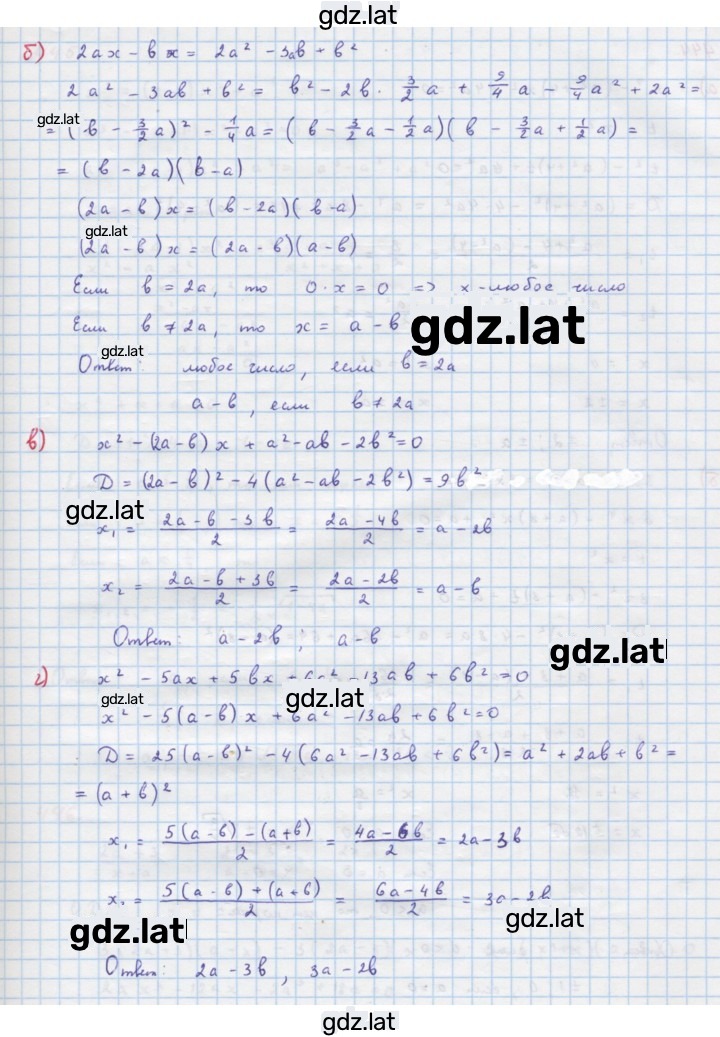 gdz.lat
б) 2ax - bx = 2a² - 3ab + b²
2a² - 3ab + b² = b² - 2b · 3/2 a + 9/4 a - 9/4 a² + 2a² =
gdz.lat
= (b - 3/2 a)² - 1/4 a = (b - 3/2 a - 1/2 a)(b - 3/2 a + 1/2 a) =
= (b - 2a)(b - a)
(2a - b)x = (b - 2a)(b - a)
gdz.lat
(2a - b)x = (2a - b)(a - b)
Если b = 2a, то 0 · x = 0 => x - любое число
Если b ≠ 2a, то x = a - b
gdz.lat
gdz.lat
Ответ: любое число, если b = 2a
a - b, если b ≠ 2a
в) x² - (2a - b)x + a² - ab - 2b² = 0
D = (2a - b)² - 4(a² - ab - 2b²) = 9b²
gdz.lat
x₁ = (2a - b - 3b)/2 = (2a - 4b)/2 = a - 2b
x₂ = (2a - b + 3b)/2 = (2a - 2b)/2 = a - b
Ответ: a - 2b; a - b
gdz.lat
г) x² - 5ax + 5bx + 6a² - 13ab + 6b² = 0
gdz.lat
gdz.lat
x² - 5(a - b)x + 6a² - 13ab + 6b² = 0
D = 25(a - b)² - 4(6a² - 13ab + 6b²) = a² + 2ab + b² =
= (a + b)²
x₁ = (5(a - b) - (a + b))/2 = (4a - 6b)/2 = 2a - 3b
x₁ = (5(a - b) + (a + b))/2 = (6a - 4b)/2 = 3a - 2b
gdz.lat
gdz.lat
Ответ: 2a - 3b, 3a - 2b
gdz.lat